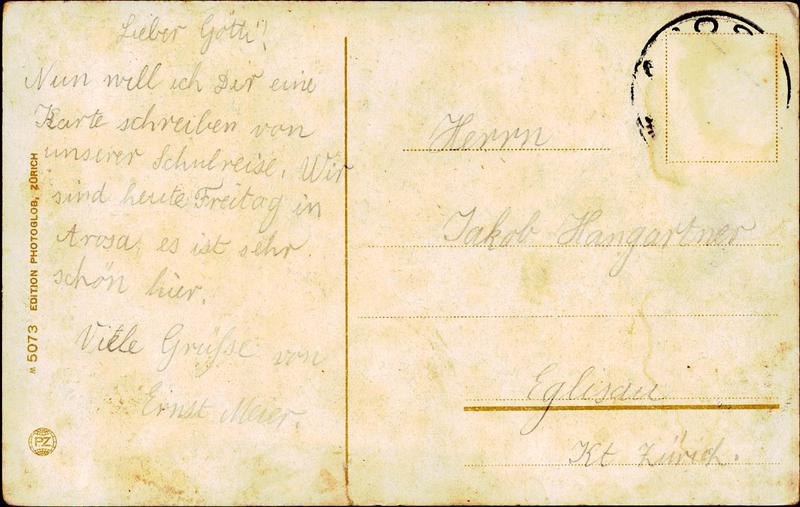 Lieber Götti!
Nun will ich Dir eine
Karte schreiben von
unserer Schulreise. Wir
sind heute Freitag in
Arosa, es ist sehr
schön hier.
Viele Grüsse von
Ernst Meier.
Herrn
Jakob Hangartner
Eglisau
Kt Zürich.
№ 5073 EDITION PHOTOGLOB, ZÜRICH
PZ